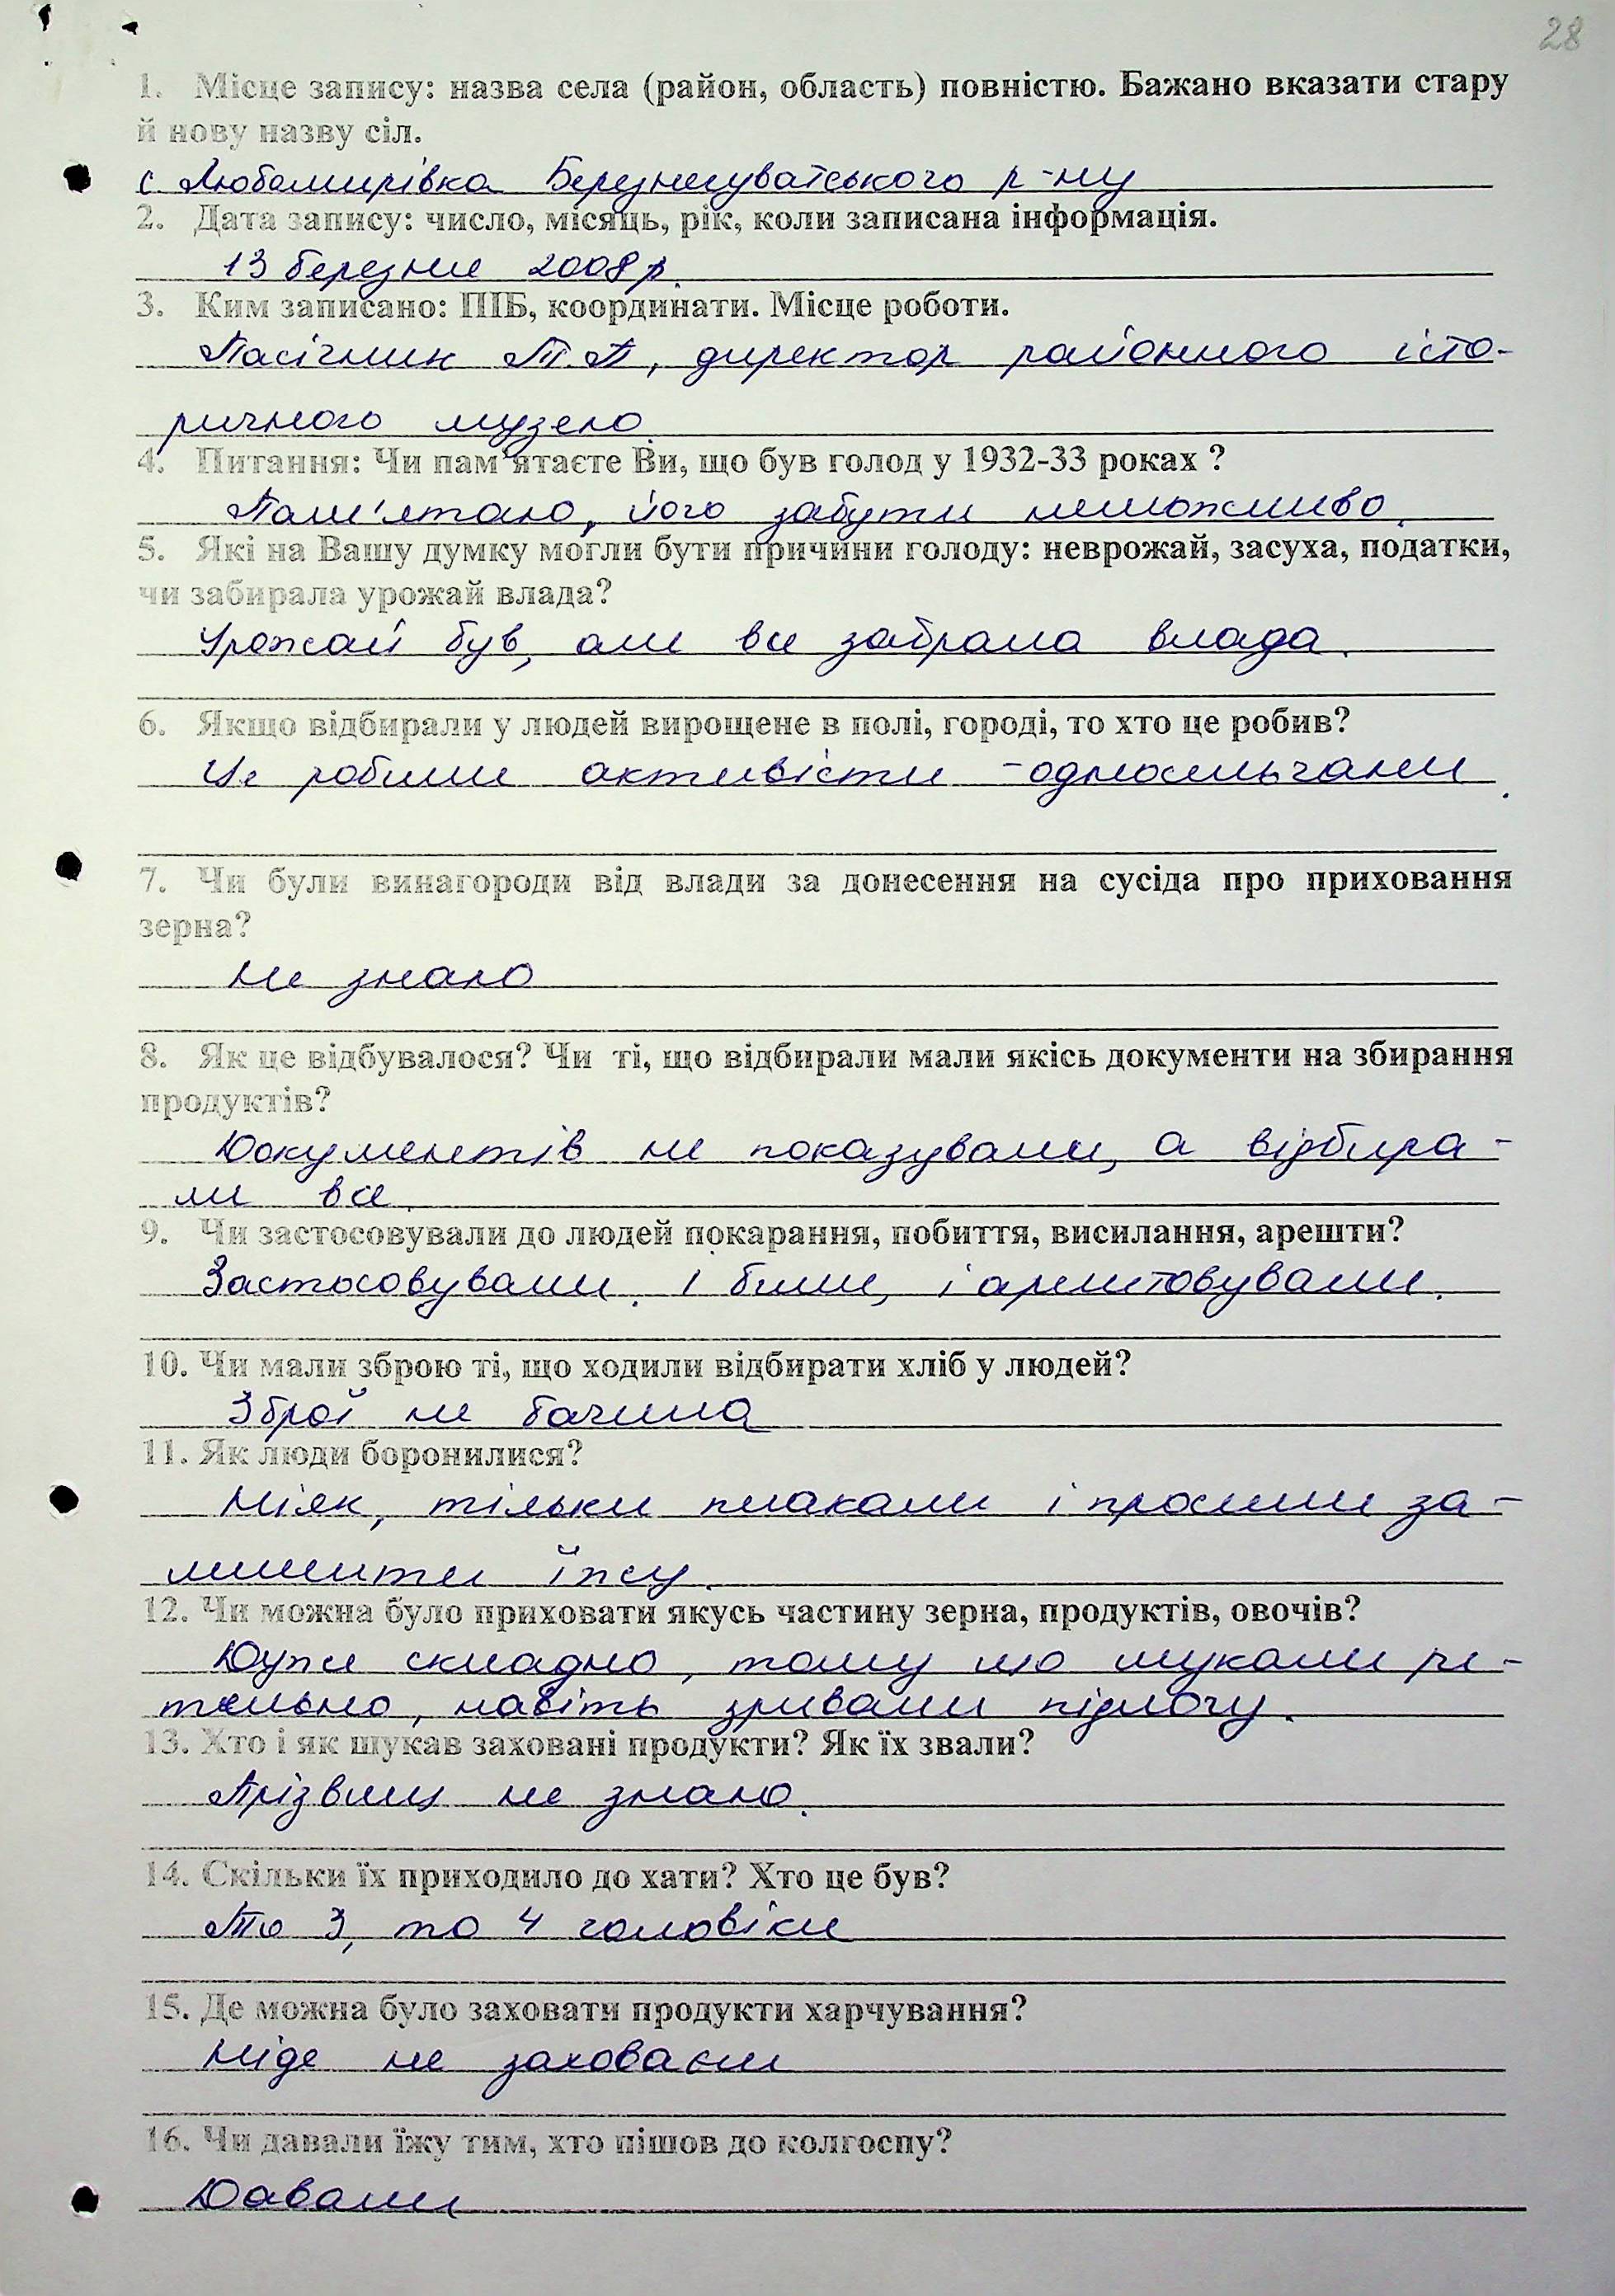 28
1. Місце запису: назва села (район, область) повністю. Бажано вказати стару
й нову назву сіл.
с Любомирівка Березнегуватського р-ну
2. Дата запису: число, місяць, рік, коли записана інформація.
13 березня 2008р.
3. Ким записано: ПІБ, координати. Місце роботи.
Пасічник Т.П, директор районного істо-
ричного музею.
4. Питання: Чи пам'ятаєте Ви, що був голод у 1932-33 роках ?
Пам'ятаю, його забути неможливо.
5. Які на Вашу думку могли бути причини голоду: неврожай, засуха, податки,
чи забирала урожай влада?
Урожай був, але все забрала влада.
6. Якщо відбирали у людей вирощене в полі, городі, то хто це робив?
Це робили активісти - односельчани.
7. Чи були винагороди від влади за донесення на сусіда про приховання
зерна?
не знаю
8. Як це відбувалося? Чи ті, що відбирали мали якісь документи на збирання
продуктів?
Документів не показували, а відбира-
ли все.
9. Чи застосовували до людей покарання, побиття, висилання, арешти?
Застосовували. І били, і арештовували.
10. Чи мали зброю ті, що ходили відбирати хліб у людей?
Зброї не бачила
11. Як люди боронилися?
Ніяк, тільки плакали і просили за-
лишити їжу.
12. Чи можна було приховати якусь частину зерна, продуктів, овочів?
Дуже складно, тому що шукали ре-
тельно, навіть зривали підлогу.
13. Хто і як шукав заховані продукти? Як їх звали?
Прізвищ не знаю.
14. Скільки їх приходило до хати? Хто це був?
То 3, то 4 чоловіки
15. Де можна було заховати продукти харчування?
Ніде не заховаєш
16. Чи давали їжу тим, хто пішов до колгоспу?
Давали